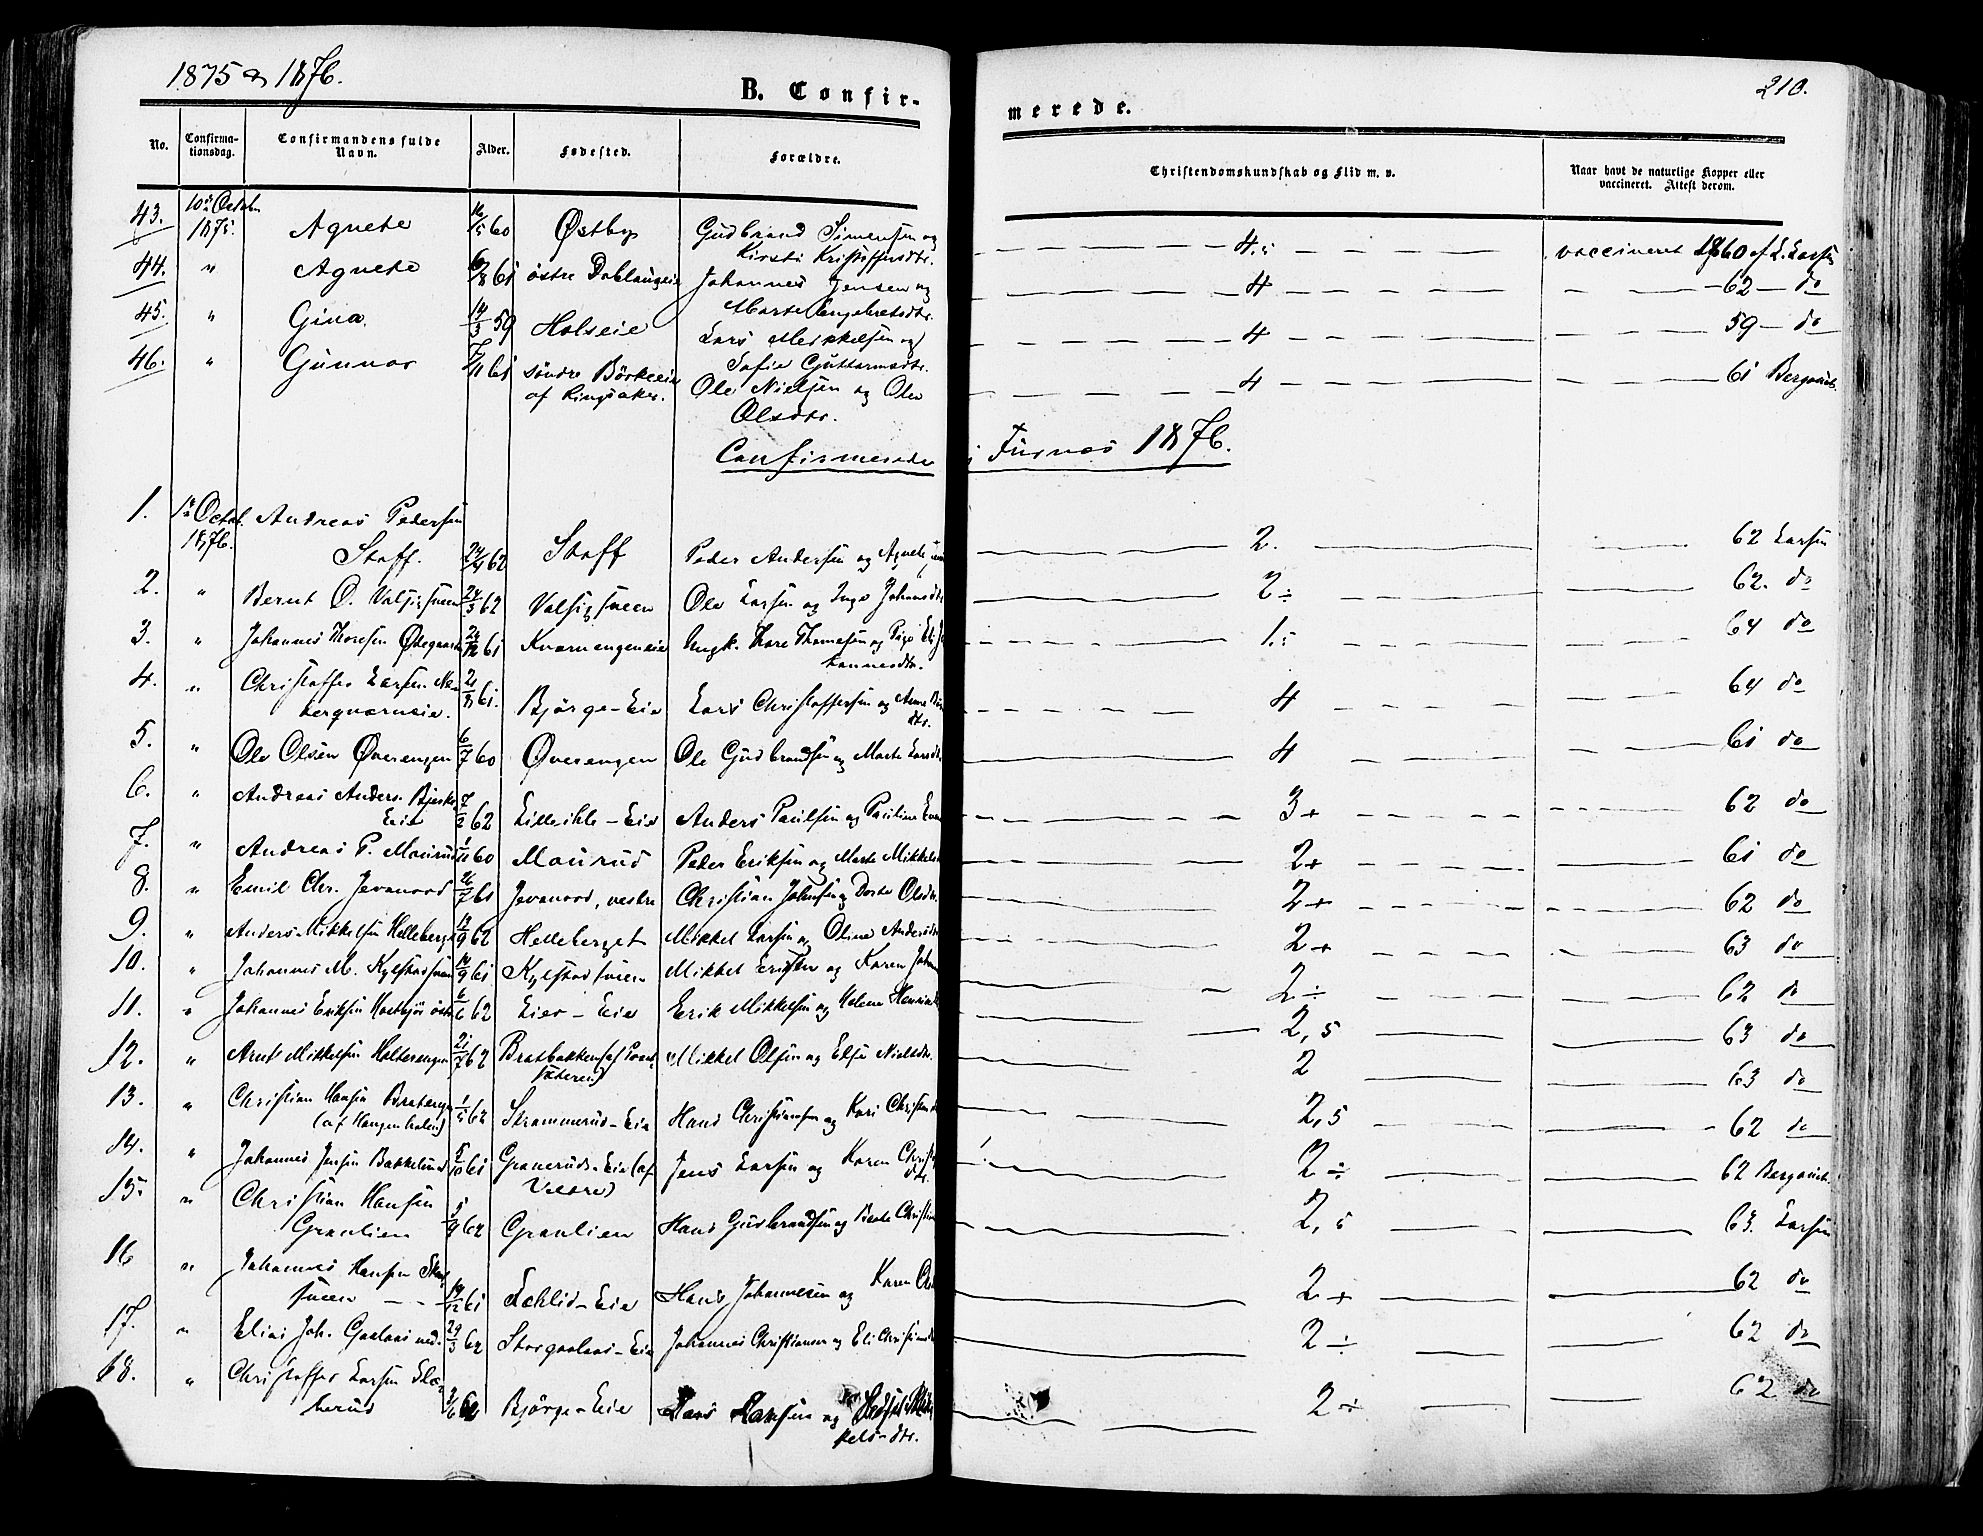 1875 & 1876.
B. Confirmerede.
210.
No. Confirmationsdag. Confirmandens fulde Navn. Alder. Fødested. Forældre. Christendomskundskab og Flid m. v. Naar havt de naturlige Kopper eller vaccineret. Attest derom.
43. 10de Octobr 1875. Agnete 16/5 60 Østby Gudbrand Simensen og Kirsti Kristoffersdtr. 4.÷ vaccineret 1860 af L. Larsen
44. " Agnete 61 østre Dahlaugeie Johannes Jensen og Marte Engebretsdtr. 4 62 do
45. " Gina 14/3 59 Holseie Lars Mikkelsen og Sofie Guttormsdtr. 4 59 do
46. " Gunnar 61 søndre Börkeeie af Ringsaker. Ole Nielsen og Olea Olsdtr. 4 61
Confirmerede i Furnes 1876.
1. 1ste Octobr. 1876. Andreas Pedersen Staff. 62 Staff Peder Andersen og Agnete 2. 62 Larsen
2. " Bernt O. Valsigsveen 24/3 62 Valsigsveen Ole Larsen og Inge Johansdtr 2÷ 62. do
3. " Johannes Thoresen Ødegaarden 61 Kvarnengeneie Ungk. Thore Thomesen og Pige Eli Johannesdtr. 1.÷ 64 do
4. " Christoffer Larsen 61. Bjørge-Eie Lars Christoffersen og Anne 4 64 do
5. " Ole Olsen Øverengen 6/7 60 Øverengen Ole Gudbrandsen og Marte Larsdtr. 4 61 do
6. " Andreas Anders. Bjerke Eie 7/2 62 Lilleihle-Eie Anders Paulsen og Pauline 3+ 62 do
7. " Andreas P. Maurud 60 Maurud Peder Eriksen og Marte Mikkels 2+ 61 do
8. " Emil Chr. Jevanord 61 Jevanord, vestre Christian Johnsen og Dorte Olsdtr. 2+ 62 do
9. " Anders Mikkelsen Helleberget 62 Helleberget Mikkel Larsen og Oline Andersdtr 2+ 63 do
10. " Johannes M. Kylstadsveen 61 Kylstadsveen Mikkel Eriksen og Karen Johan 2÷ 62 do
11. " Johannes Eriksen 6/6 62 Lier-Eie Erik Mikkelsen og Helene Henriks 2,5 63 do
12. " Arnt Mikkelsen Holterengen 21/7 62 Bratbakken Mikkel Olsen og Else Nielsdtr. 2 63 do
13. " Christian Hansen Bratengen 1/5 62 Strammerud-Eie Hans Christiansen og Kari Christ 2,5 62 do
14. " Johannes Jensen Bakkelund 61 Graverud-Eie (af Veldre) Jens Larsen og Karen Christ dtr. 2÷ 62
15. " Christian Hansen Granlien 62 Granlien Hans Gudbrandsen og Beate Christi 2,5 63. Larsen
16 " Johannes Hansen sveen 19/12 61 Hans Johannesen og Karen 2+ 62 do
17. " Elias Joh. Gaalaas ned. 29/3 62 Storgaalaas-Eie Johannes Christiansen og Eli Christians 2÷ 62 do
68. " Christoffer Larsen 62 Bjørge-Eie Lars Larsen og Mikkelsdtr. 2÷ 62 do